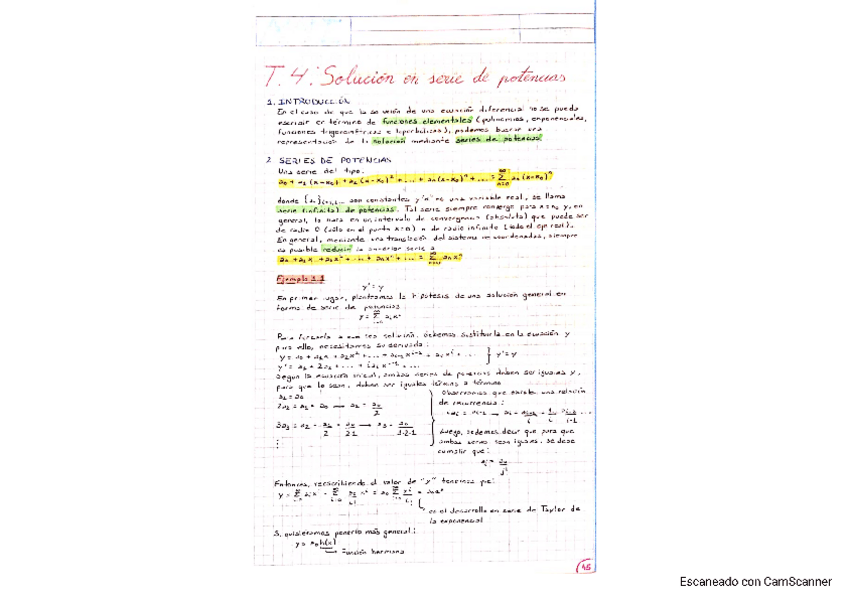 T.4: Solución en serie de potencias
1. INTRODUCCIÓN
En el caso de que la solución de una ecuación diferencial no se pueda
escribir en término de funciones elementales (polinomios, exponenciales,
funciones trigonométricas e hiperbólicas), podemos buscar una
representación de la solución mediante series de potencias.
2. SERIES DE POTENCIAS
Una serie del tipo:
a₀ + a₁ (x-x₀) + a₂ (x-x₀)² + ... + aₙ (x-x₀)ⁿ + ... = Σ aₙ (x-x₀)ⁿ
donde son constantes y "x" es una variable real, se llama
serie (infinita) de potencias. Tal serie siempre converge para x=x₀ y, en
general, lo hará en un intervalo de convergencia (absoluta) que puede ser
de radio 0 (sólo en el punto x=0) o de radio infinito (todo el eje real).
En general, mediante una translación del sistema de coordenadas, siempre
es posible reducir la anterior serie a
a₀ + a₁x + a₂x² + ... + aₙxⁿ + ... = Σ aₙxⁿ
Ejemplo 1.1
y' = y
En primer lugar, planteamos la hipótesis de una solución general en
forma de serie de potencias
y = Σ aᵢxⁱ
Para forzarla a que sea solución, debemos sustituirla en la ecuación y
para ello, necesitamos su derivada:
y = a₀ + a₁x + a₂x² + ... + aᵢ₋₁xⁱ⁻¹ + aᵢxⁱ + ... } y' = y
y' = a₁ + 2a₂x + ... + iaᵢxⁱ⁻¹ + ...
Según la ecuación inicial, ambas series de potencias deben ser iguales y,
para que lo sean, deben ser iguales término a término
a₁ = a₀
2a₂ = a₁ = a₀ → a₂ = a₀/2
3a₃ = a₂ = a₀/2 = a₀/2·1 → a₃ = a₀/3·2·1
⋮
Observamos que existe una relación
de recurrencia:
Luego, podemos decir que para que
ambas series sean iguales, se debe
cumplir que:
aᵢ = a₀/i!
Entonces, reescribiendo el valor de "y" tenemos que:
y = Σ aᵢxⁱ = Σ a₀/i! xⁱ = a₀ Σ xⁱ/i! = a₀eˣ
es el desarrollo en serie de Taylor de
la exponencial
Si quisiéramos ponerlo más general:
y = a₀h(x)
Función hermana
45
Escaneado con CamScanner